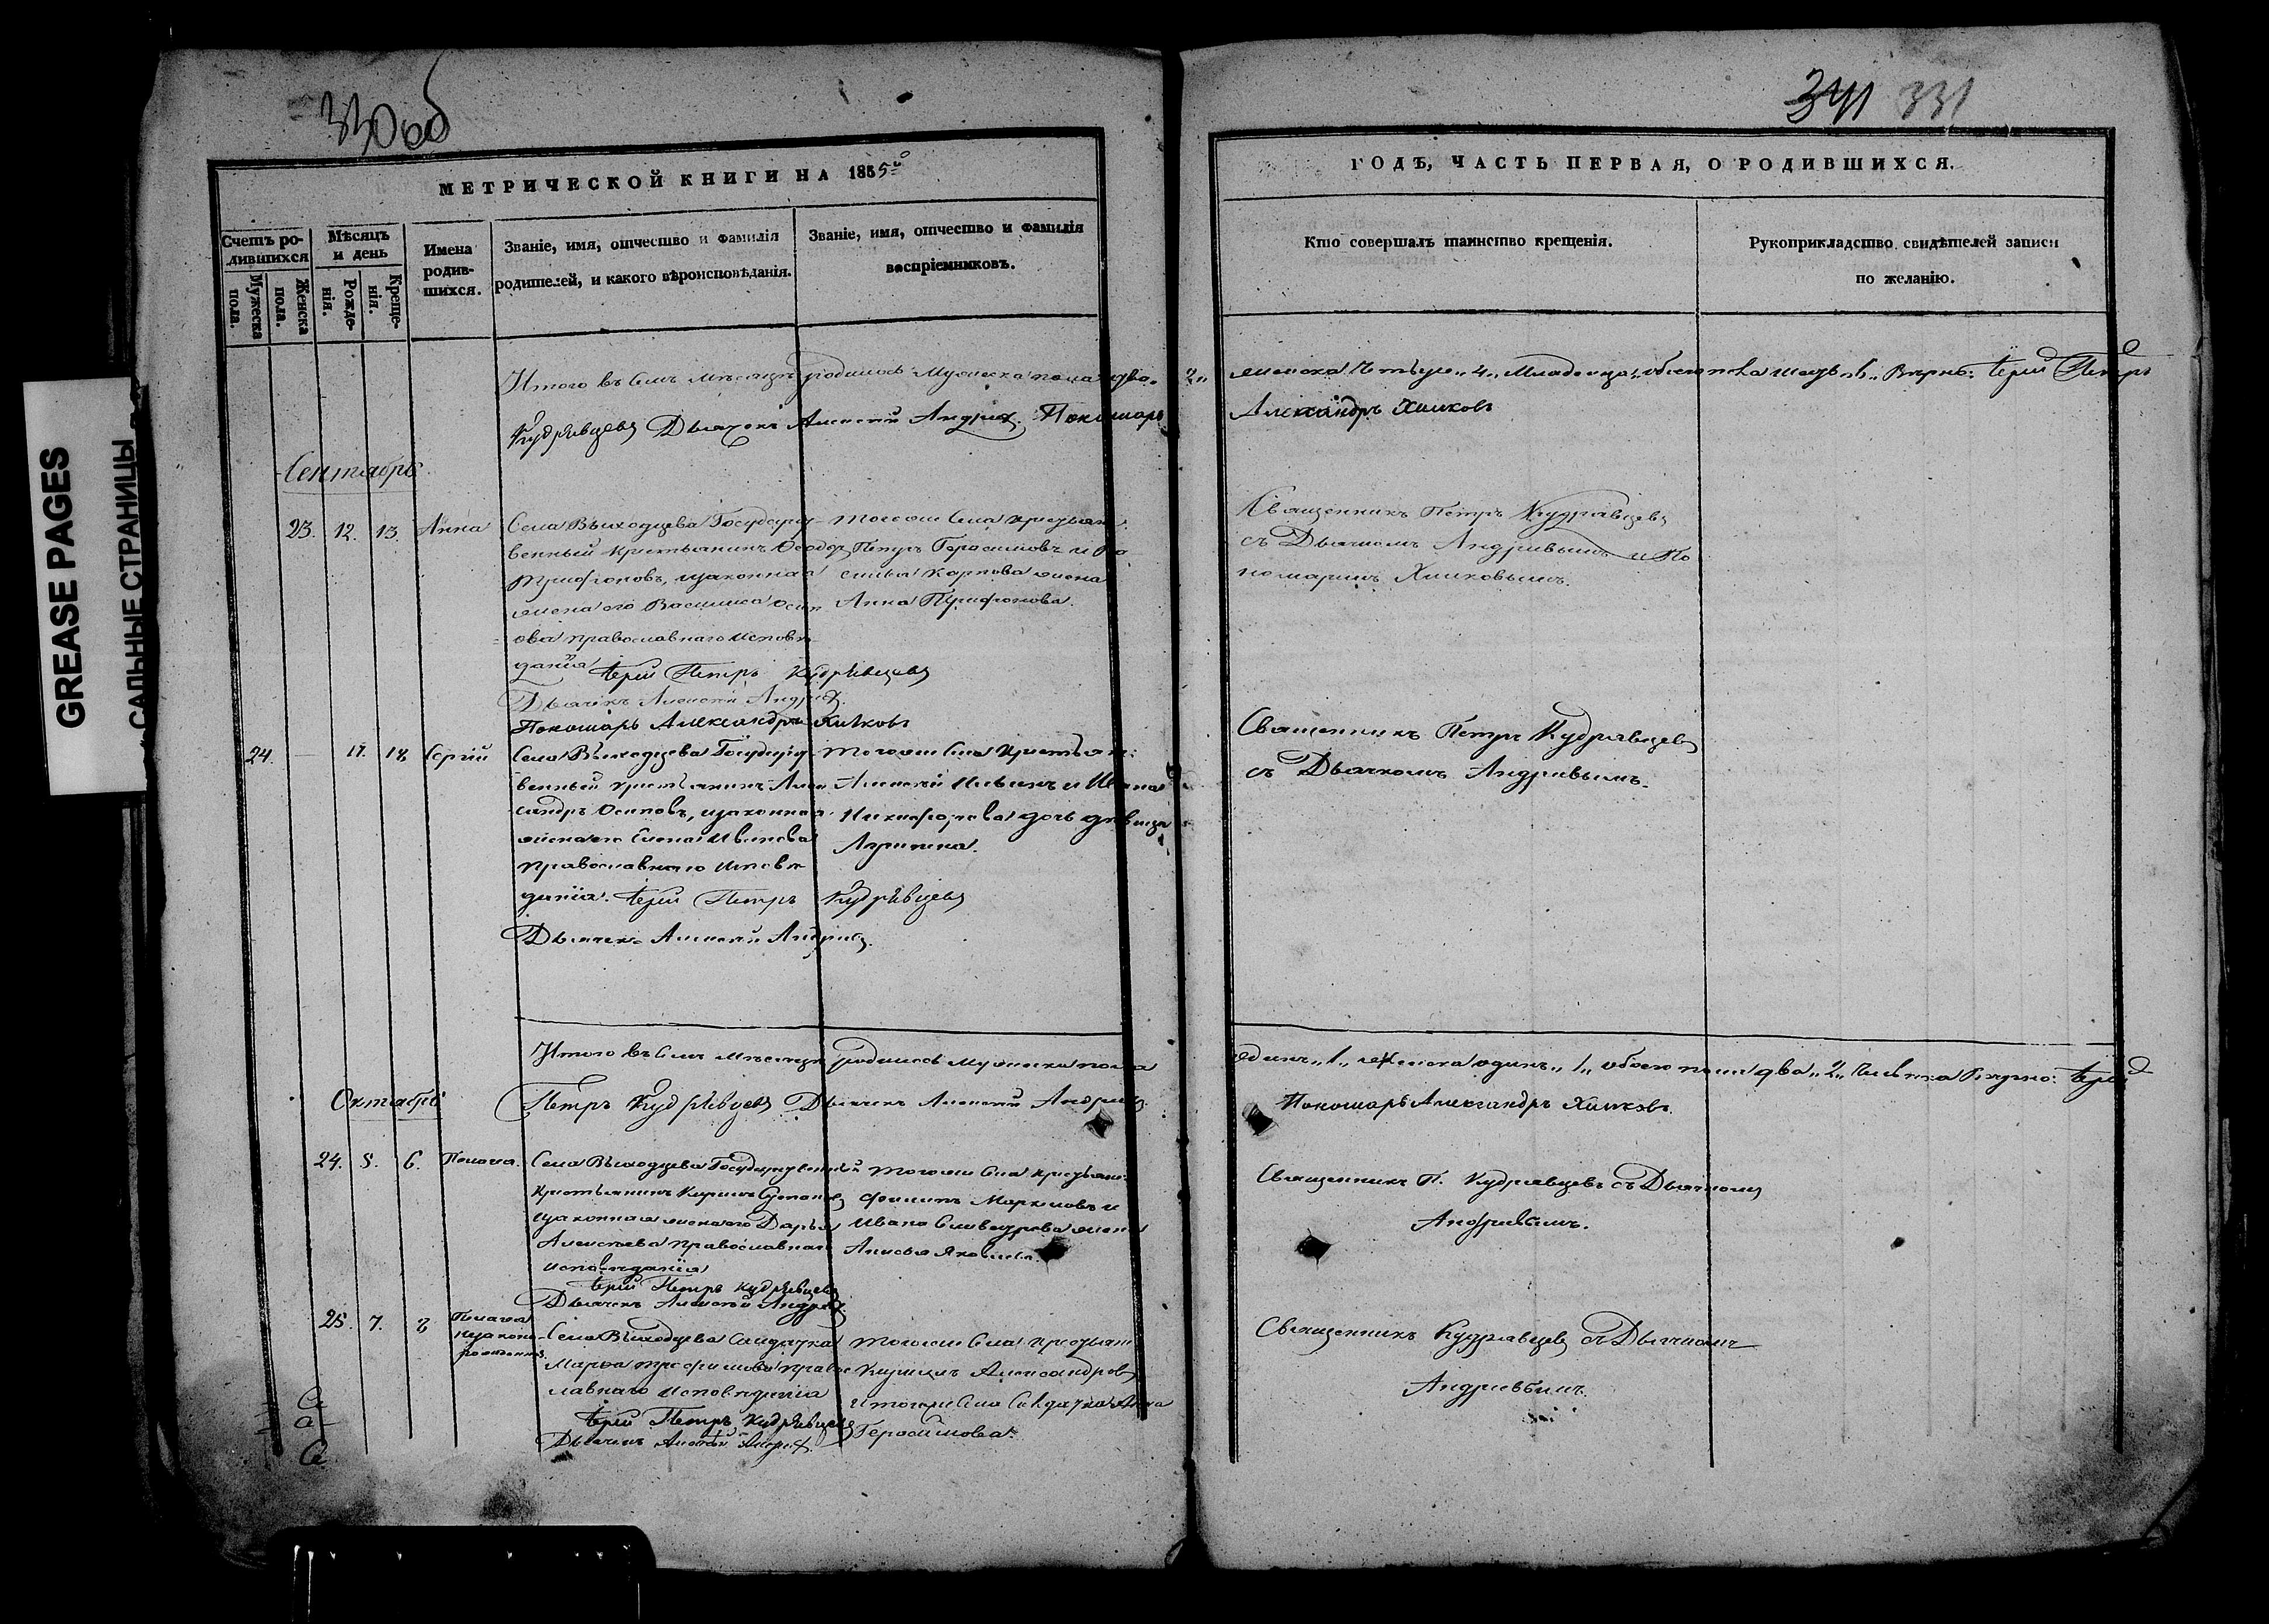 330об
341 331
GREASE PAGES
САЛЬНЫЕ СТРАНИЦЫ
МЕТРИЧЕСКОЙ КНИГИ НА 1855й
Счетъ ро-
дившихся
Мужеска
пола.
Женска
пола.
Мѣсяцъ
и день
Рожде-
нія.
Креще-
нія.
Имена
родив-
шихся.
Званіе, имя, отчество и фамилія
родителей, и какого вѣроисповѣданія.
Званіе, имя, отчество и фамилія
воспріемниковъ.
Итого въ семъ мѣсяцѣ родилось мужеска пола два.
Кудрявцевъ Дьячекъ Алексей Андреев. Пономарь
Сентябрь
23. 12. 13. Анна
Села Выходцева Государст-
венный крестьянинъ Ѳеодоръ
Трифоновъ, изаконная
жена его Василиса Осип
ова православнаго исповѣ
данія Іерей Петръ Кудрявцевъ
Дьячекъ Алексей Андреев.
Пономарь Александръ Хилковъ
тогожъ села крестьян.
Петръ Герасимовъ и
Карпова жена
Анна Трифонова.
24. — 17. 18 Сергій
Села Выходцева Государст-
венный крестьянинъ Алек
сандръ Осиповъ, изаконная
жена его Елена Иванова
православнаго исповѣ
данія. Іерей Петръ Кудрявцевъ
Дьячекъ Алексей Андреев.
тогожъ села крестьян:
Алексѣй Ильинъ и
Никифорова дочь девица
Агрипина.
Итого въ семъ мѣсяцѣ родилось мужеска пола
Октябрь
Петръ Кудрявцевъ Дьячекъ Алексей Андреев
24. 5. 6. Пелагея
Села Выходцева Государственный
крестьянинъ Кирилъ Степановъ
изаконная жена его Дарья
Алексеева православнаго
исповѣданія
Іерей Петръ Кудрявцевъ
Дьячекъ Алексей Андреев.
тогожъ села крестьян:
Филипъ Марковъ и
Ивана Селиверстова жена
Анисья Яковлева.
25. 7. 8 Пелагея
незаконно-
рожденная.
Села Выходцева Солдатка
Марѳа Трофимова право
славнаго исповѣданія
Іерей Петръ Кудрявцевъ
Дьячекъ Алексей Андреев.
тогожъ села крестьян
Александровъ
и тогоже села Солдатка Анна
Герасимова.
ГОДѢ, ЧАСТЬ ПЕРВАЯ, О РОДИВШИХСЯ.
Кто совершалъ таинство крещенія.
Рукоприкладство свидѣтелей записи
по желанію.
2, женска четыре, 4, младенца, обоего пола шесть, 6, Вѣрно: Іерей Петръ
Александръ Хилковъ
Священникъ Петръ Кудрявцевъ
съ Дьячкомъ Андреевымъ и По
номаремъ Хилковымъ.
Священникъ Петръ Кудрявцевъ
съ Дьячкомъ Андреевымъ.
единъ, 1, женска одинъ, 1, обоего пола два, 2, человека Вѣрно: Іерей
Пономарь Александръ Хилковъ.
Священникъ П. Кудрявцевъ съ Дьячкомъ
Андреевымъ.
Священникъ Кудрявцевъ съ Дьячкомъ
Андреевымъ.